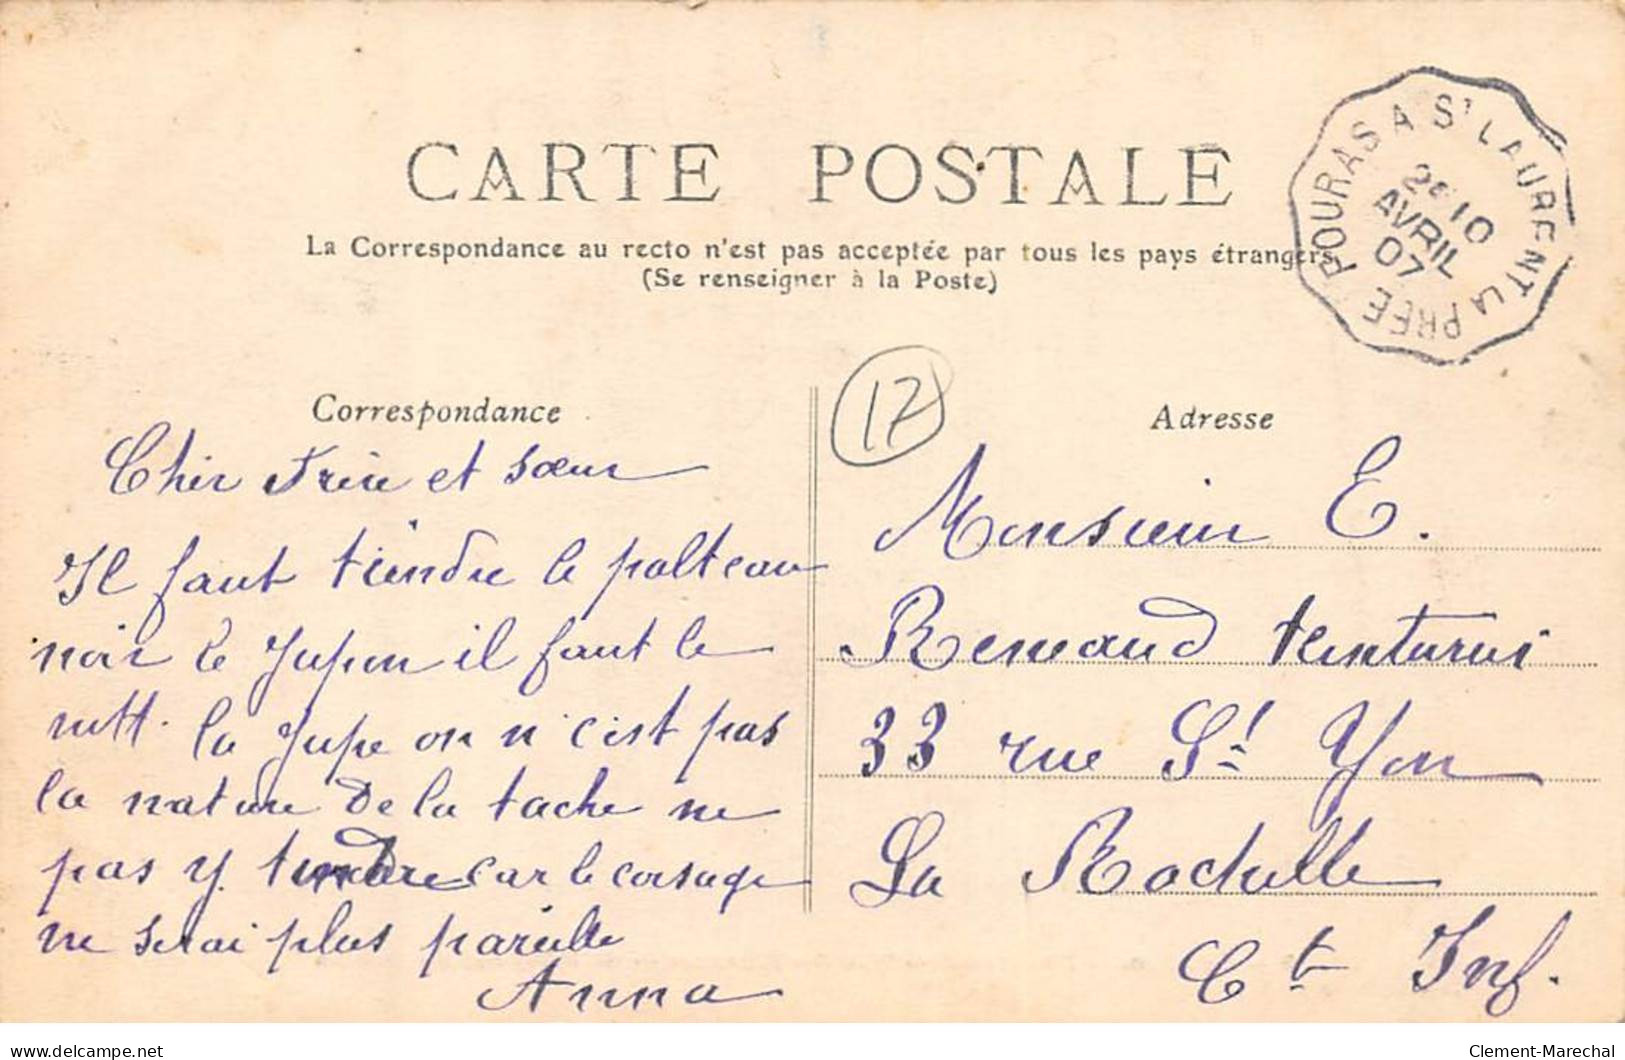 CARTE POSTALE
La Correspondance au recto n'est pas acceptée par tous les pays étrangers
(Se renseigner à la Poste)
FOURAS A St LAURENT LA PRÉE
2e 10
AVRIL
07
17
Correspondance
Cher Frère et sœur
Il faut teindre le palteau
noir le Jupon il faut le
nett. la Jupe on n'c'est pas
la nature de la tache ne
pas y teindre car le corsage
ne serai plus pareille
Anna
Adresse
Monsieur E.
Renaud teinturier
33 rue St Yon
La Rochelle
Cte Inf.
delcampe.net
Clement-Marechal